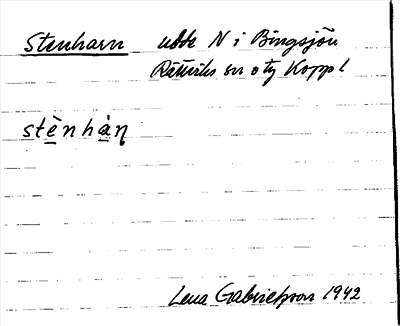 Stenharn udde N i Bingsjön
Rättviks sn o tg Koppl
stènhàn̥
Lena Gabrielsson 1942